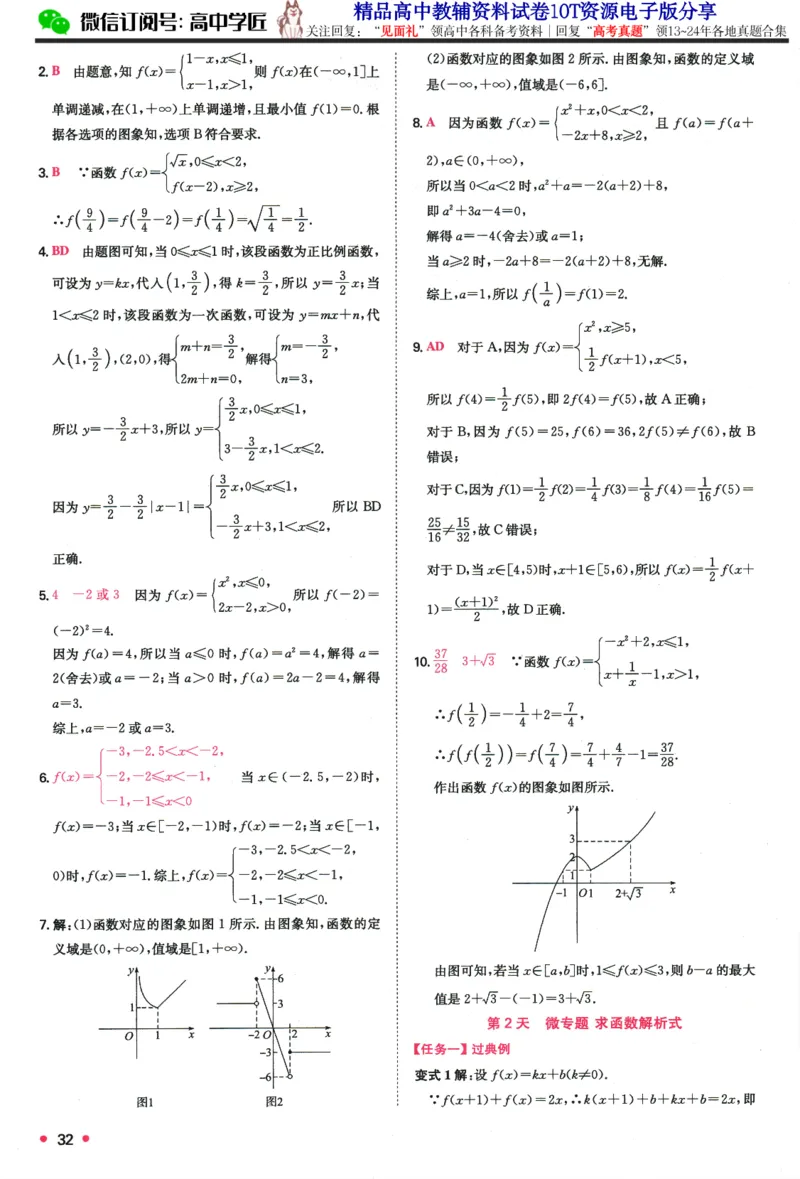 微信订阅号: 高中学匠
精品高中教辅资料试卷IOT资源电子版分享
关注回复：“见面礼”领高中各科备考资料｜回复“高考真题”领13~24年各地真题合集
2.B 由题意,知 f(x)={1−x,x≤1, x−1,x>1, 则 f(x)在(−∞,1]上
单调递减,在(1,+∞)上单调递增,且最小值 f(1)=0.根
据各选项的图象知,选项 B 符合要求.
3.B ∵函数 f(x)={√x,0≤x<2, f(x−2),x≥2,
∴f(9/4)=f(9/4−2)=f(1/4)=√(1/4)=1/2.
4.BD 由题图可知,当 0≤x≤1 时,该段函数为正比例函数,
可设为 y=kx,代入(1,3/2),得 k=3/2,所以 y=3/2x;当
1<x≤2 时,该段函数为一次函数,可设为 y=mx+n,代
入(1,3/2),(2,0),得{m+n=3/2, 2m+n=0, 解得{m=−3/2, n=3,
所以 y=−3/2x+3,所以 y={3/2x,0≤x≤1, 3−3/2x,1<x≤2.
因为 y=3/2−3/2|x−1|={3/2x,0≤x≤1, −3/2x+3,1<x≤2, 所以 BD
正确.
5.4 −2 或 3 因为 f(x)={x²,x≤0, 2x−2,x>0, 所以 f(−2)=
(−2)²=4.
因为 f(a)=4,所以当 a≤0 时,f(a)=a²=4,解得 a=
2(舍去)或 a=−2;当 a>0 时,f(a)=2a−2=4,解得
a=3.
综上,a=−2 或 a=3.
6.f(x)={−3,−2.5<x<−2, −2,−2≤x<−1, −1,−1≤x<0 当 x∈(−2.5,−2)时,
f(x)=−3;当 x∈[−2,−1)时,f(x)=−2;当 x∈[−1,
0)时,f(x)=−1.综上,f(x)={−3,−2.5<x<−2, −2,−2≤x<−1, −1,−1≤x<0.
7.解:(1)函数对应的图象如图 1 所示.由图象知,函数的定
义域是(0,+∞),值域是[1,+∞).
y
1
O 1 x
图1
y
6
3
−2 O 2 x
−3
−6
图2
(2)函数对应的图象如图 2 所示.由图象知,函数的定义域
是(−∞,+∞),值域是(−6,6].
8.A 因为函数 f(x)={x²+x,0<x<2, −2x+8,x≥2, 且 f(a)=f(a+
2),a∈(0,+∞),
所以当 0<a<2 时,a²+a=−2(a+2)+8,
即 a²+3a−4=0,
解得 a=−4(舍去)或 a=1;
当 a≥2 时,−2a+8=−2(a+2)+8,无解.
综上,a=1,所以 f(1/a)=f(1)=2.
9.AD 对于 A,因为 f(x)={x²,x≥5, 1/2f(x+1),x<5,
所以 f(4)=1/2f(5),即 2f(4)=f(5),故 A 正确;
对于 B,因为 f(5)=25,f(6)=36,2f(5)≠f(6),故 B
错误;
对于C,因为 f(1)=1/2f(2)=1/4f(3)=1/8f(4)=1/16f(5)=
25/16≠15/32,故 C 错误;
对于 D,当 x∈[4,5)时,x+1∈[5,6),所以 f(x)=1/2f(x+
1)=(x+1)²/2,故 D 正确.
10.37/28 3+√3 ∵函数 f(x)={−x²+2,x≤1, x+1/x−1,x>1,
∴f(1/2)=−1/4+2=7/4,
∴f(f(1/2))=f(7/4)=7/4+4/7−1=37/28.
作出函数 f(x)的图象如图所示.
y
3
2
1
−1 O 1 2+√3 x
由图可知,若当 x∈[a,b]时,1≤f(x)≤3,则 b−a 的最大
值是 2+√3−(−1)=3+√3.
第 2 天 微专题 求函数解析式
【任务一】过典例
变式 1 解:设 f(x)=kx+b(k≠0).
∵f(x+1)+f(x)=2x,∴k(x+1)+b+kx+b=2x,即
32